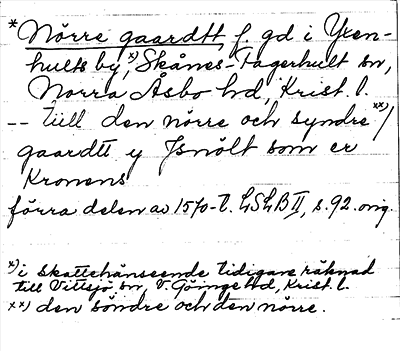 * Nörre gaardtt f. gd i Yxen-
hults by, x) Skånes-Fagerhult sn,
Norra Åsbo hd, Krist. l.
-- tiill den nörre och syndre xx)/
gaardtt y Jsnölt som er
Kronens
förra delen av 1570-t. LSLB II, s. 92. orig.
x) i skattehänseende tidigare räknad
till Vittsjö sn, V. Göinge hd, Krist. l.
xx) den söndre och den nörre.